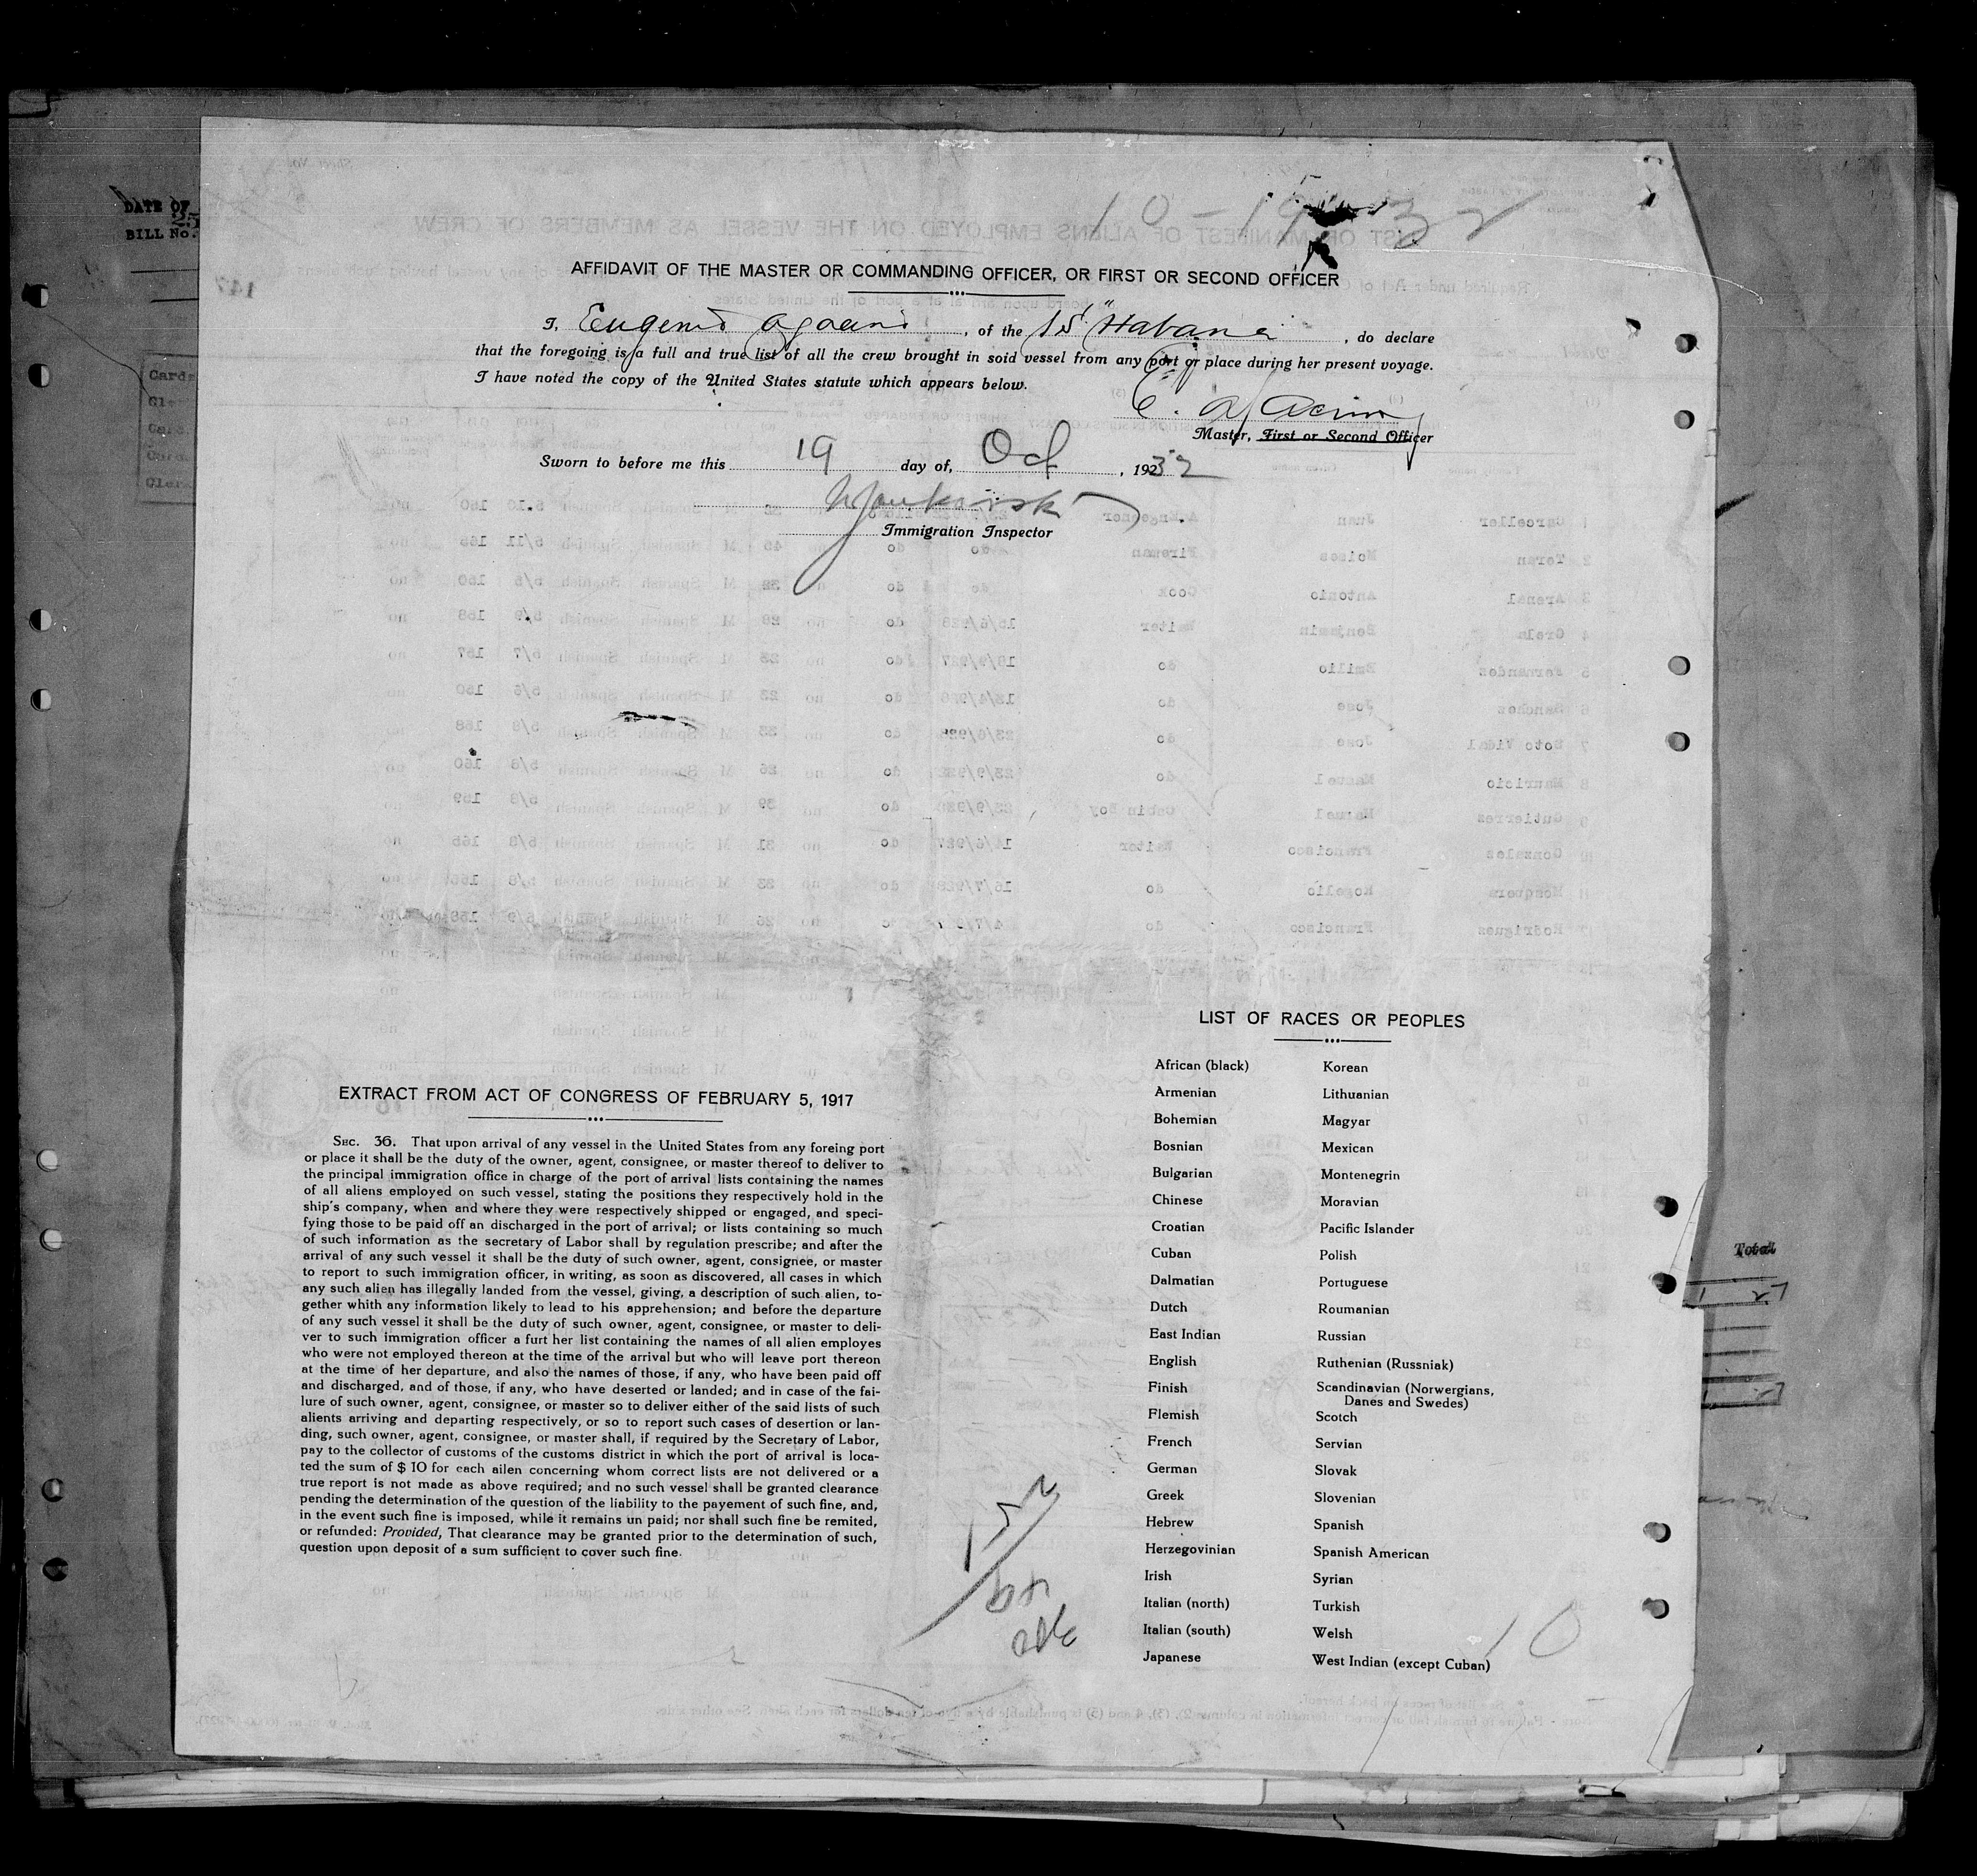 10-19-32
DATE OF
BILL No.
AFFIDAVIT OF THE MASTER OR COMMANDING OFFICER, OR FIRST OR SECOND OFFICER
I, Eugenio , of the SS "Habana" , do declare
that the foregoing is a full and true list of all the crew brought in soid vessel from any port or place during her present voyage.
I have noted the copy of the United States statute which appears below.
Master, First or Second Officer
Sworn to before me this 19 day of, Oct , 1932
Immigration Inspector
LIST OF RACES OR PEOPLES
African (black) Korean
Armenian Lithuanian
Bohemian Magyar
Bosnian Mexican
Bulgarian Montenegrin
Chinese Moravian
Croatian Pacific Islander
Cuban Polish
Dalmatian Portuguese
Dutch Roumanian
East Indian Russian
English Ruthenian (Russniak)
Finish Scandinavian (Norwergians,
Danes and Swedes)
Flemish Scotch
French Servian
German Slovak
Greek Slovenian
Hebrew Spanish
Herzegovinian Spanish American
Irish Syrian
Italian (north) Turkish
Italian (south) Welsh
Japanese West Indian (except Cuban)
10
EXTRACT FROM ACT OF CONGRESS OF FEBRUARY 5, 1917
SEC. 36. That upon arrival of any vessel in the United States from any foreing port
or place it shall be the duty of the owner, agent, consignee, or master thereof to deliver to
the principal immigration office in charge of the port of arrival lists containing the names
of all aliens employed on such vessel, stating the positions they respectively hold in the
ship's company, when and where they were respectively shipped or engaged, and speci-
fying those to be paid off an discharged in the port of arrival; or lists containing so much
of such information as the secretary of Labor shall by regulation prescribe; and after the
arrival of any such vessel it shall be the duty of such owner, agent, consignee, or master
to report to such immigration officer, in writing, as soon as discovered, all cases in which
any such alien has illegally landed from the vessel, giving, a description of such alien, to-
gether whith any information likely to lead to his apprehension; and before the departure
of any such vessel it shall be the duty of such owner, agent, consignee, or master to deli-
ver to such immigration officer a furt her list containing the names of all alien employes
who were not employed thereon at the time of the arrival but who will leave port thereon
at the time of her departure, and also the names of those, if any, who have been paid off
and discharged, and of those, if any, who have deserted or landed; and in case of the fai-
lure of such owner, agent, consignee, or master so to deliver either of the said lists of such
alients arriving and departing respectively, or so to report such cases of desertion or lan-
ding, such owner, agent, consignee, or master shall, if required by the Secretary of Labor,
pay to the collector of customs of the customs district in which the port of arrival is loca-
ted the sum of $ 10 for each ailen concerning whom correct lists are not delivered or a
true report is not made as above required; and no such vessel shall be granted clearance
pending the determination of the question of the liability to the payement of such fine, and,
in the event such fine is imposed, while it remains un paid; nor shall such fine be remited,
or refunded: Provided, That clearance may be granted prior to the determination of such,
question upon deposit of a sum sufficient to cover such fine.
152
Total